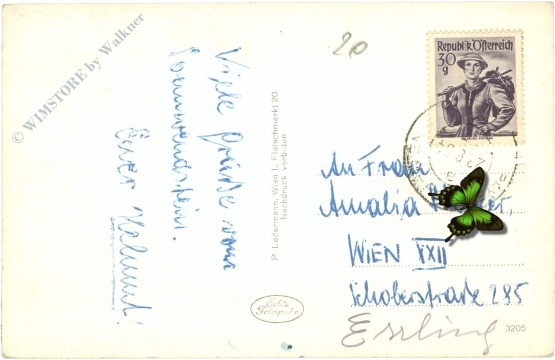 © WIMSTORE by Walkner
20
Republik Österreich
30
g
Viele Grüße vom
Sonnwendstein.
Euer Helmut!
P. Ledermann, Wien I., Fleischmarkt 20
Nachdruck verboten
An Frau
Amalia
WIEN XXII
Schoberstraße 285
Essling
Echte
Fotografie
3205